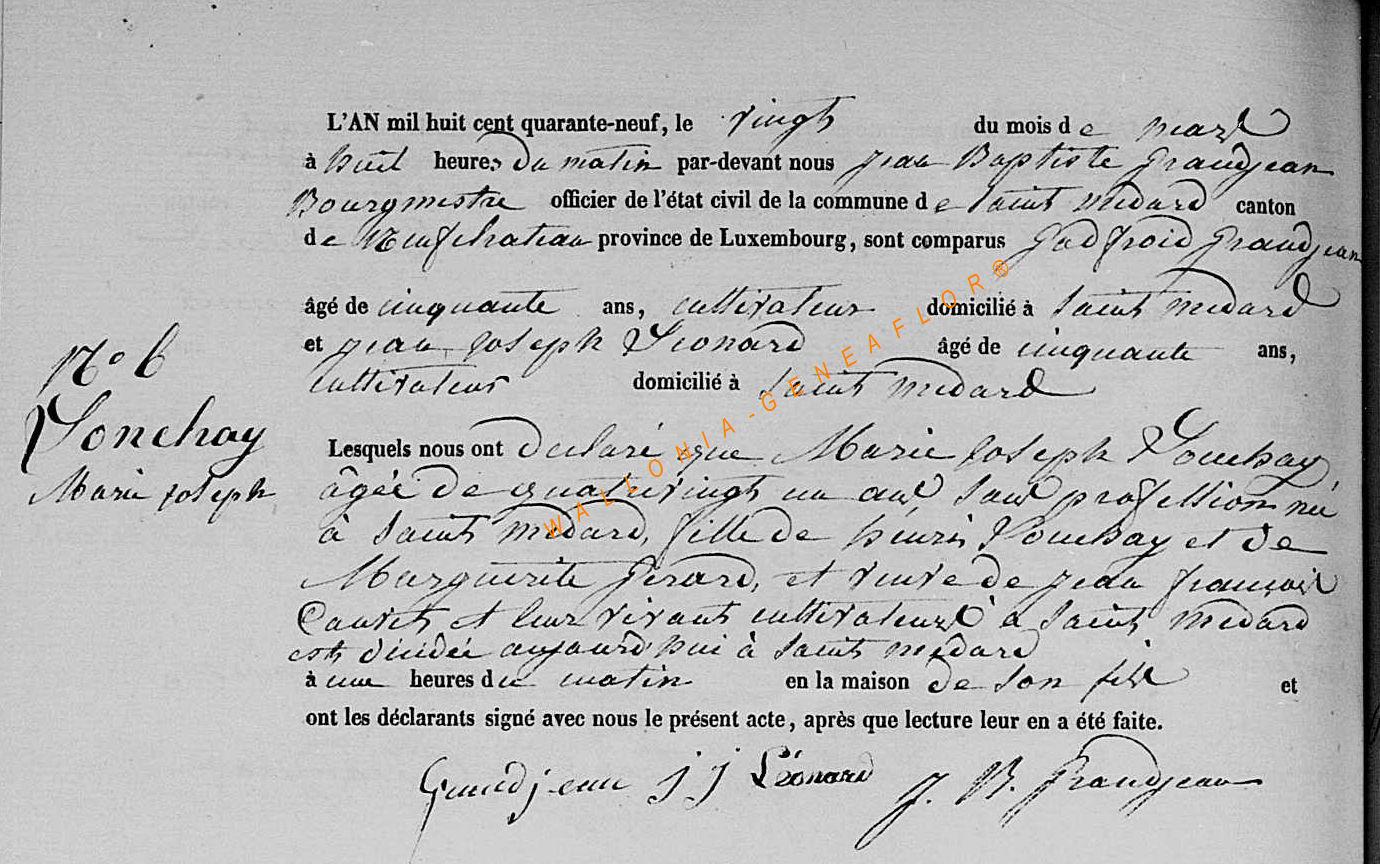 L'AN mil huit cent quarante-neuf, le vingt du mois de mars
à huit heures du matin par-devant nous Jean Baptiste Grandjean
Bourgmestre officier de l'état civil de la commune de Saint Medard canton
de Neufchateau province de Luxembourg, sont comparus Godfroid Grandjean
âgé de cinquante ans, cultivateur domicilié à Saint Medard
et Jean Joseph Léonard âgé de cinquante ans,
cultivateur domicilié à Saint Medard
N° 6
Louchay
Marie Joseph
Lesquels nous ont declaré que Marie Joseph Louchay
âgée de quatrevingt un ans sans profession né
à Saint Medard, fille de henri Louchay et de
Marguerite Gerard, et veuve de Jean françois
et leur vivant cultivateurs à Saint Medard
est décidée aujourd'hui à Saint Medard
à une heures du matin en la maison de son fils et
ont les déclarants signé avec nous le présent acte, après que lecture leur en a été faite.
Grandjean J J Léonard J. B. Grandjean
WALLONIA-GENEAFLOR®